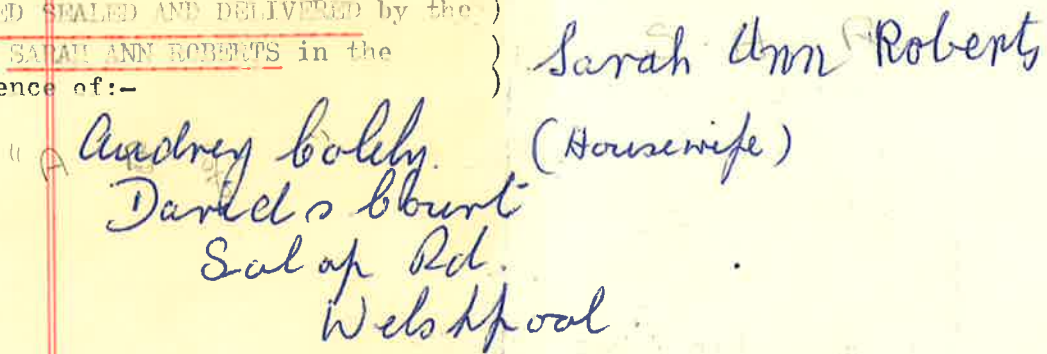 ED SEALED AND DELIVERED by the )
SARAH ANN ROBERTS in the )
ence of:- )
Sarah Ann Roberts
Audrey (Housewife)
Davids Court
Salop Rd.
Welshpool